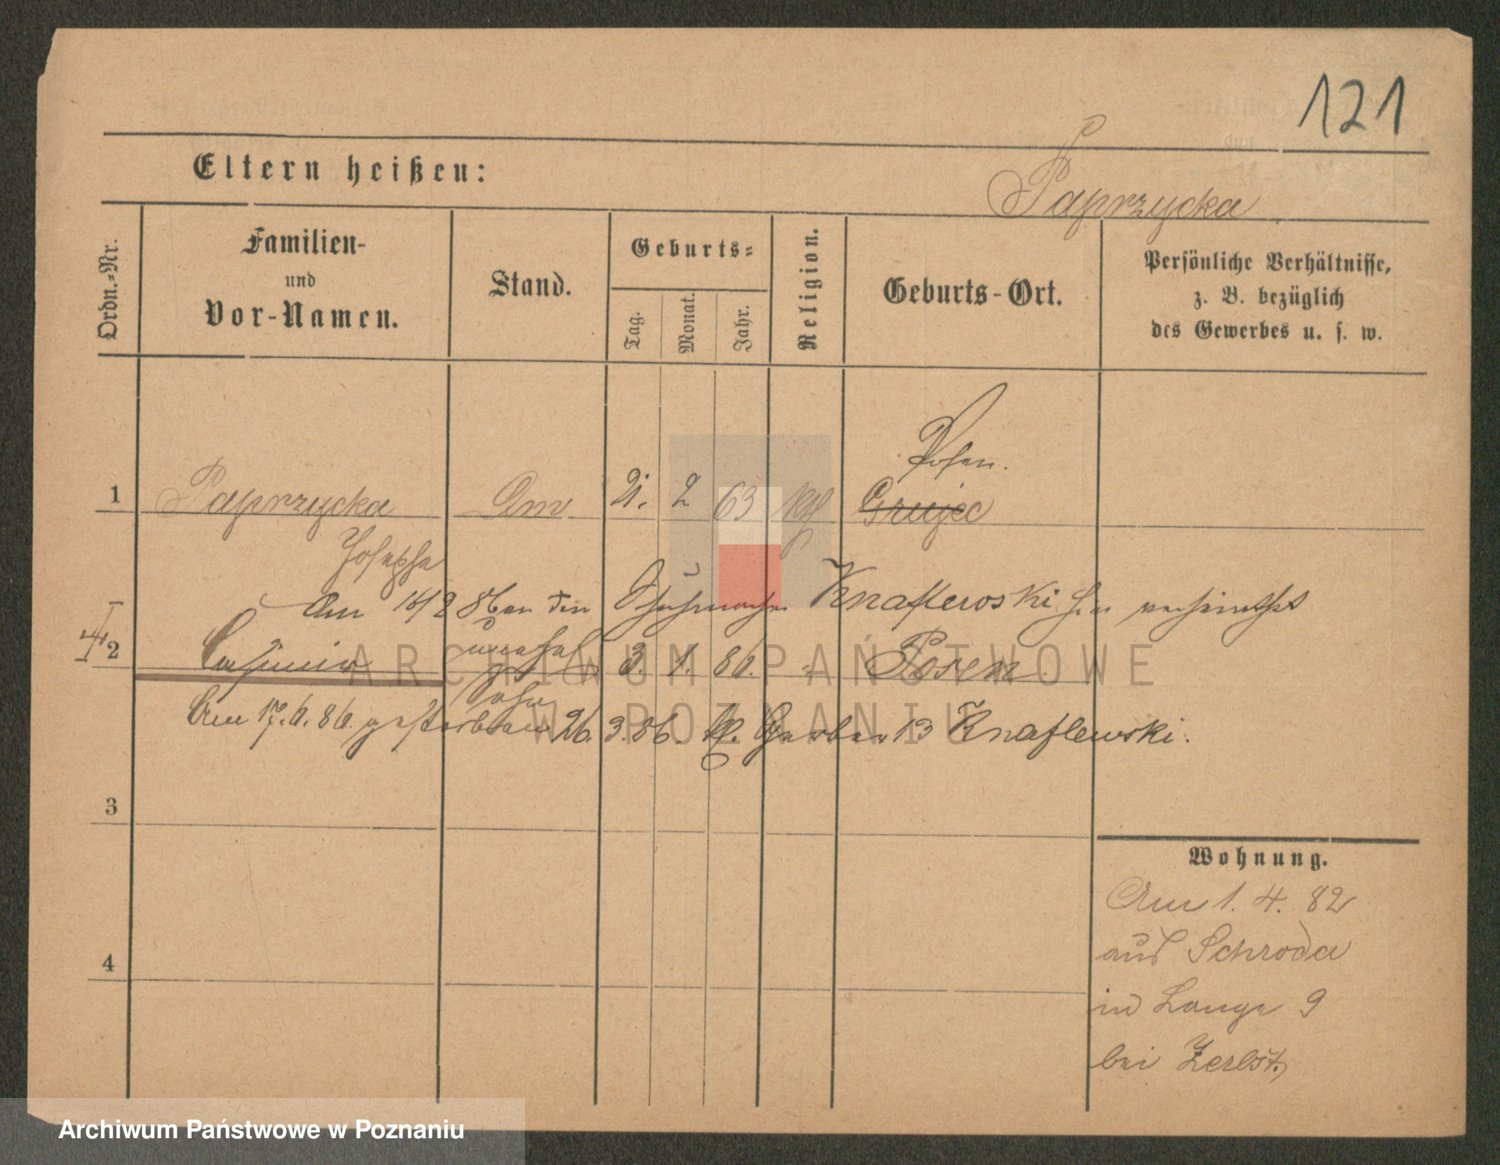 121
P
Eltern heißen:
Paprzycka
Ordn.-Nr.
Familien-
und
Vor-Namen.
Stand.
Geburts-
Tag.
Monat.
Jahr.
Religion.
Geburts-Ort.
Persönliche Verhältnisse,
z. B. bezüglich
des Gewerbes u. s. w.
Posen.
1 Paprzycka 21. 2 63 Grujec
Josepha
Am 16/2 86 an den Schuhmacher Knaflewski hier verheirathet
unehel
2 Casimir 3. 1. 86. Posen
Sohn
Am 17.6.86 gestorben 26.3.86. Gerber 13 Knaflewski.
3
4
Wohnung.
Am 1. 4. 82
aus Schroda
in Lange 9
bei Zerbst.
ARCHIWUM PAŃSTWOWE
W POZNANIU
Archiwum Państwowe w Poznaniu